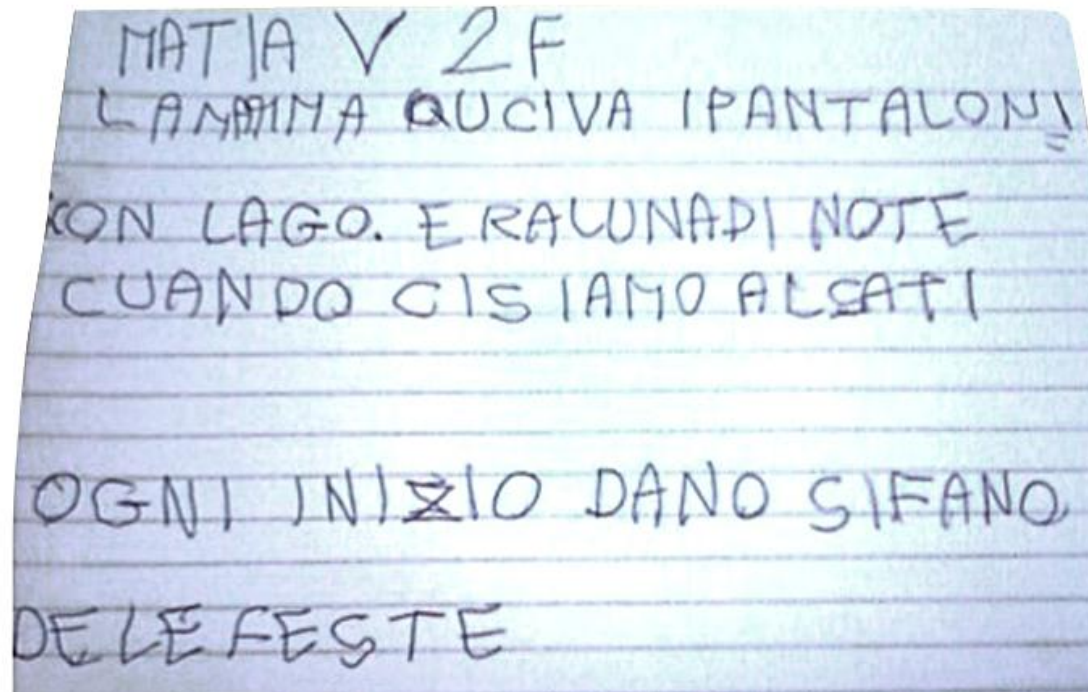 MATIA V 2F
LAMAMMA QUCIVA IPANTALONI
KON LAGO. E RALUNADI NOTE
CUANDO CISIAMO ALSATI
OGNI INIZIO DANO SIFANO
DELE FESTE